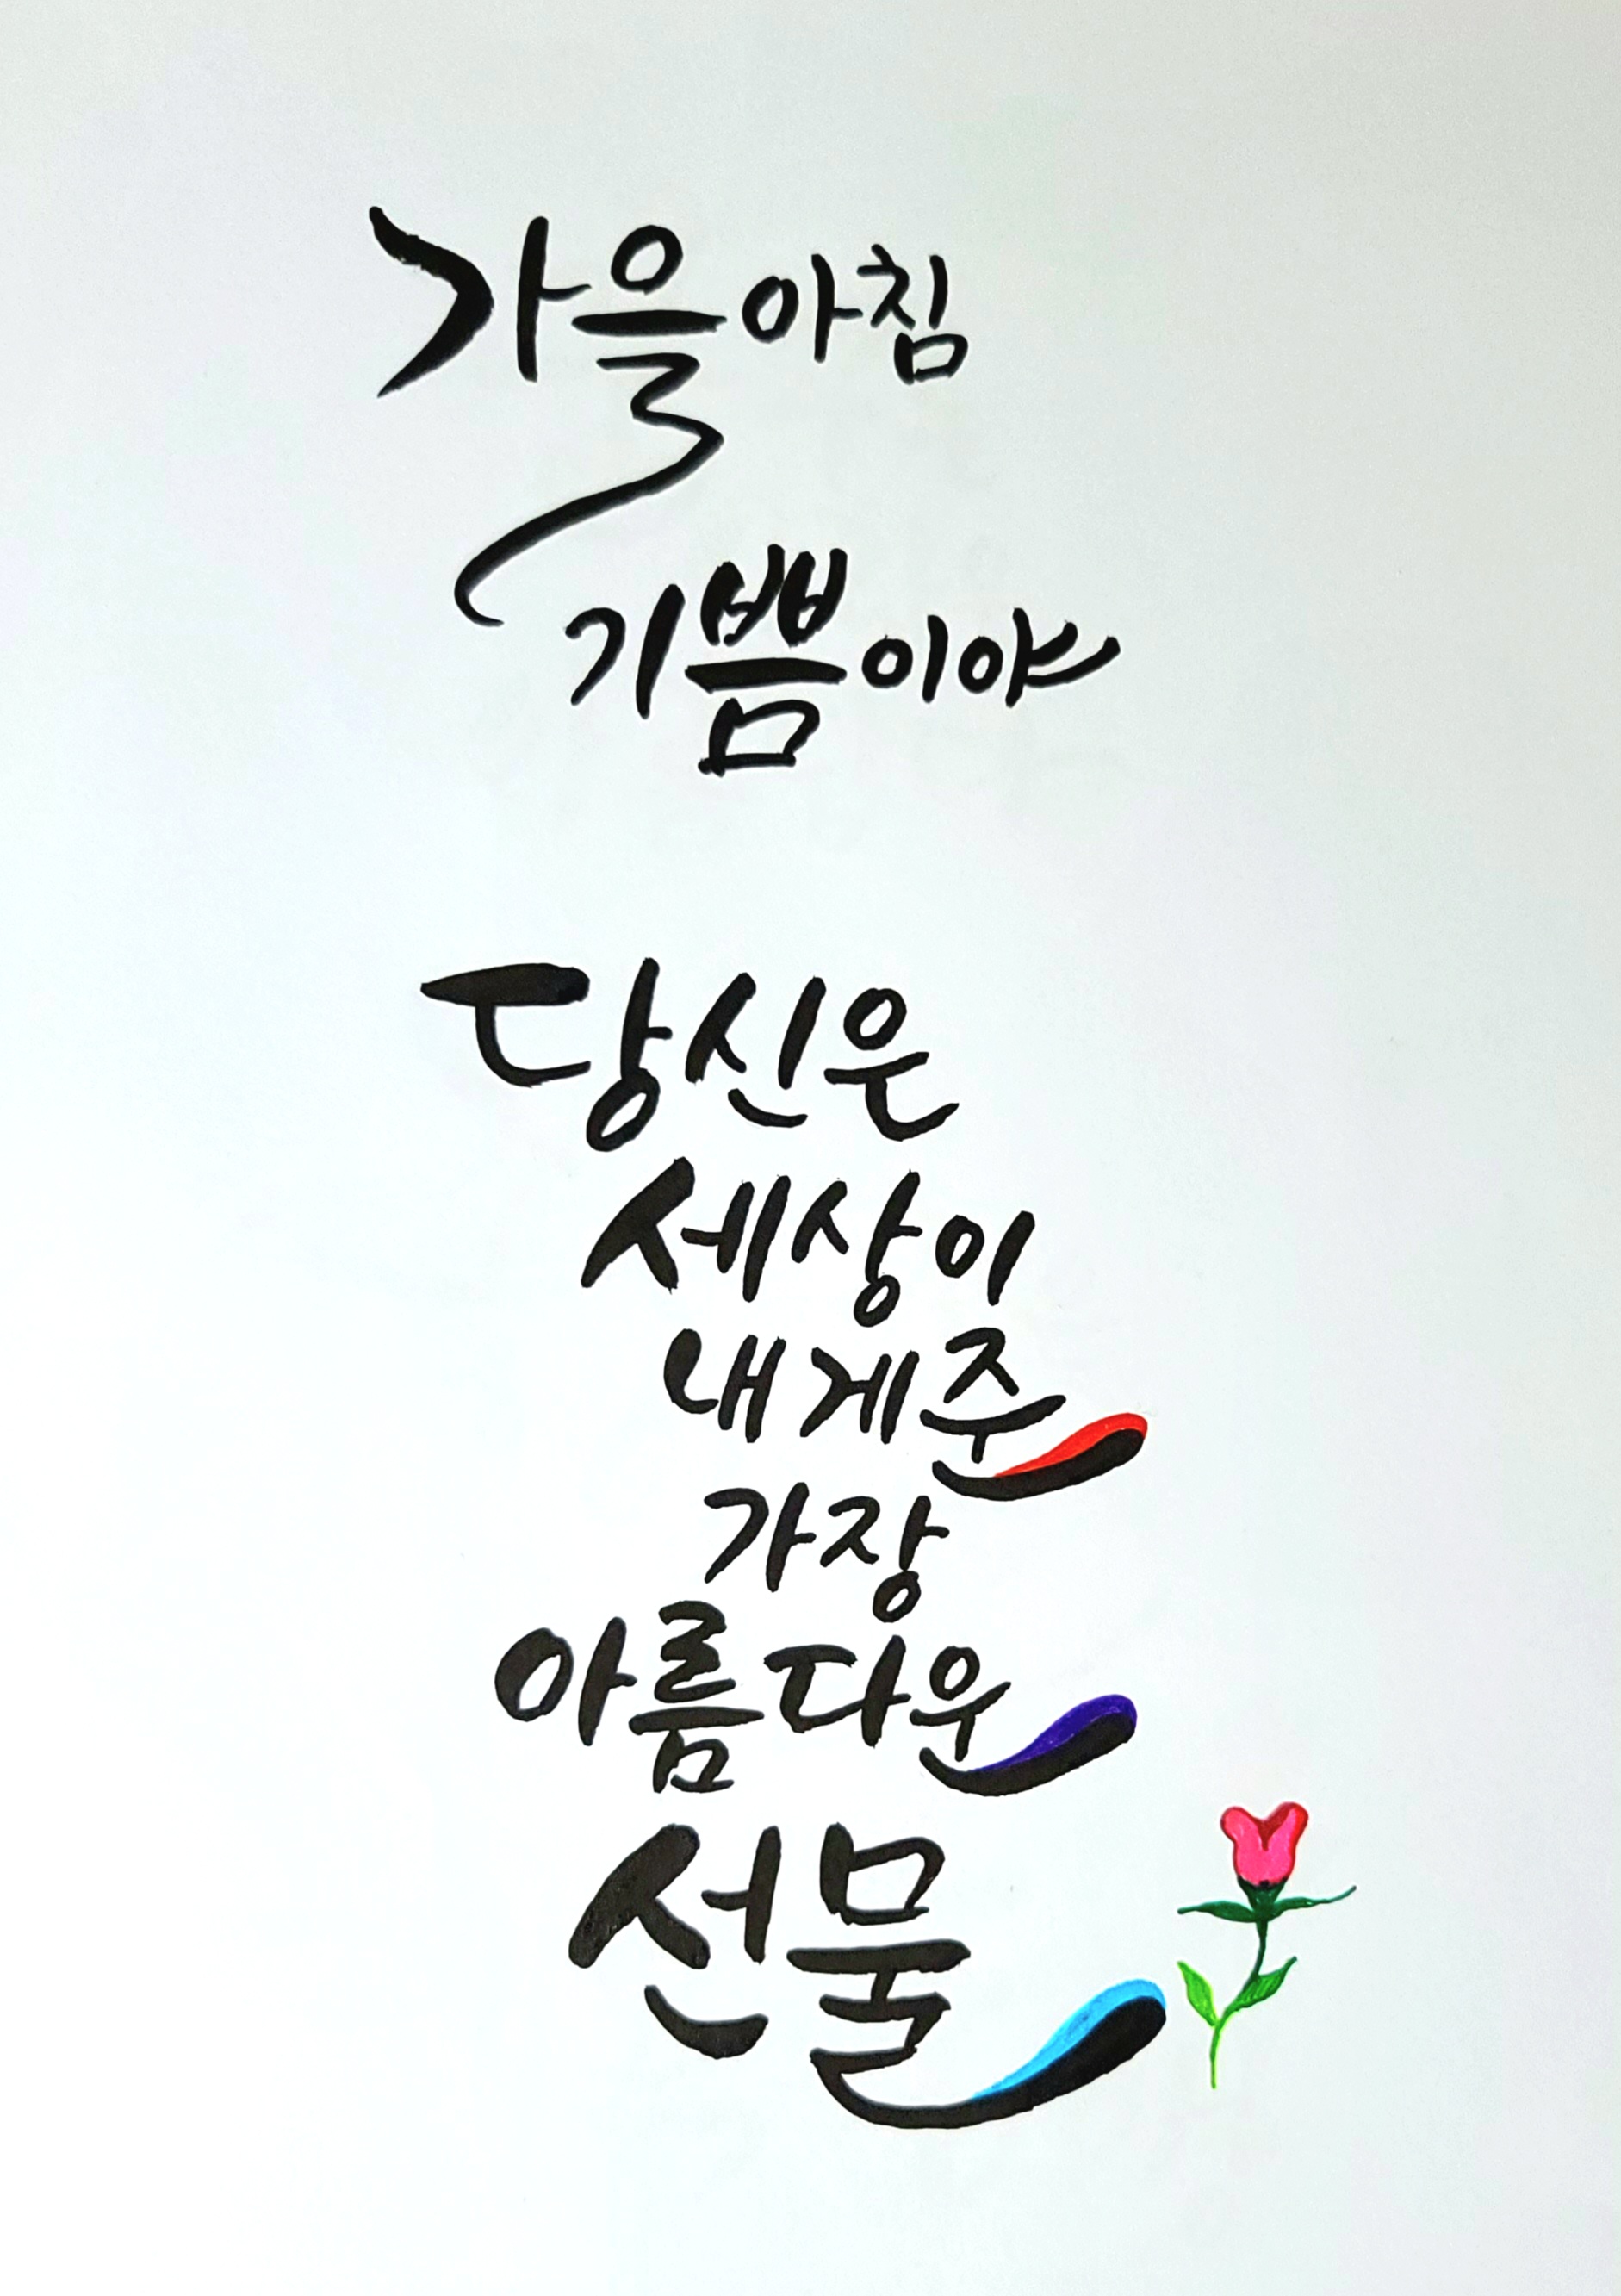 가을 아침
기쁨이야
당신은
세상이
내게 준
가장
아름다운
선물